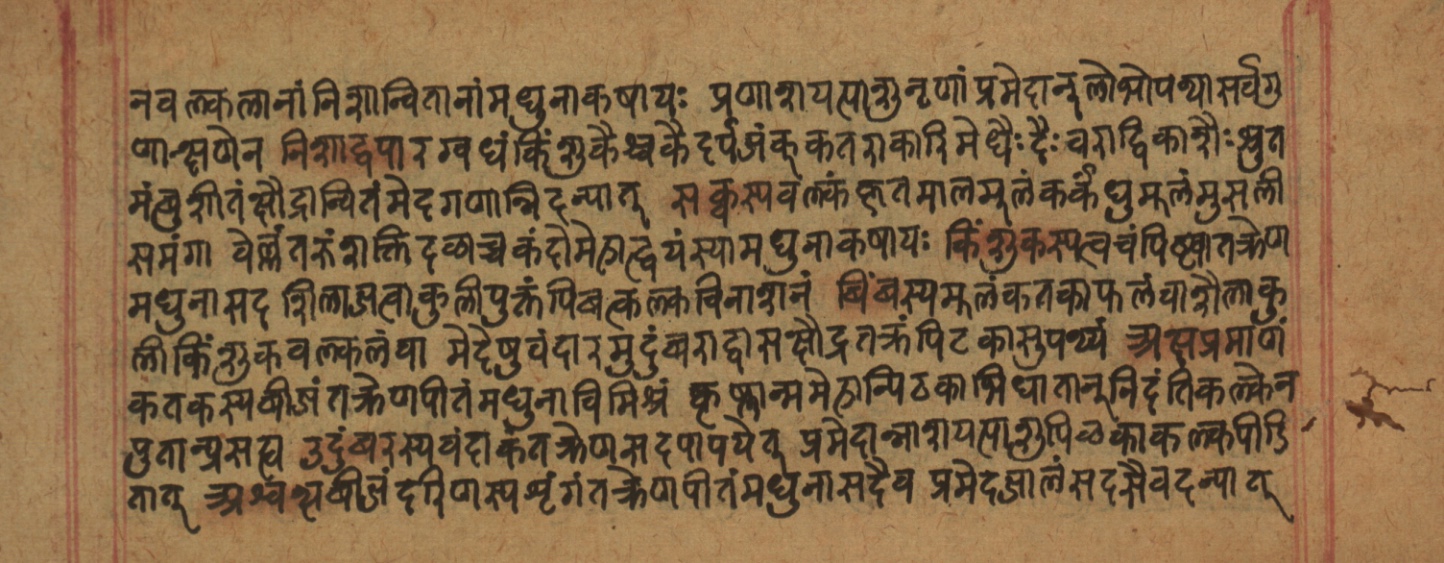 नवल्कलानां निशान्वितानां मधुना कषायः प्रणाशयत्याशु नृणां प्रमेहान् लोभोपन्यासर्वगु
णान्क्षणेन निशाद्वपारग्वधं किंशुकैश्च कै दर्प्पजं कतराकारिमेधैः दैः चराद्विकाशैः श्रुत
मंत्युशीतं क्षौद्रान्वितं मेहगणान्निहन्यात् सक्वस्य वल्कं कृतमालमूलं कर्कंधुमूलं मुसली
समंगा वेल्लंतरुंशक्तिदलाच्च कंदो मेहाद्वयं स्यामधुना कषायः किंशुकस्य त्वचं पिष्ट्वा तक्रेण
मधुना सह शिलाजत्वाकुली पुक्तं पिबत्कल्कविनाशनं बिंबस्य मूलं कतकाफलं वा शैलाकु
ली किंशुकवल्कलं वा मेहेषु वंदारमुदुंबराद्वा सक्षौद्रतक्रं पिटकासु पथ्यं अक्षप्रमाणं
कतकस्य बीजं तक्रेण पीतं मधुना विमिश्रं कृछ्रान्ममेहान्पिठकाभिघातान् निहंति कल्केन
पुतान्प्रसह्य उदुंबरस्य वंदाकं तक्रेण सह पापयेत् प्रमेहान्नाशयत्याशु पिळकाकल्कपीडि
तात् अश्वंथ्रबीजं हरिणस्य शृंगं तक्रेण पीतं मधुना सदैव प्रमेहजालं सहसैव हन्यात्